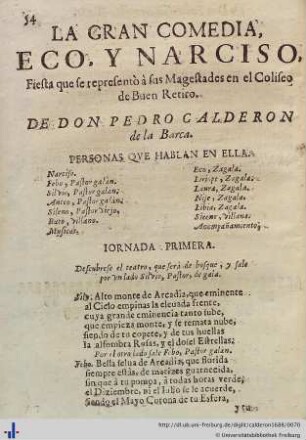 54
LA GRAN COMEDIA,
ECO, Y NARCISO,
Fiesta que se representò à sus Magestades en el Coliseo
de Buen Retiro.
DE DON PEDRO CALDERON
de la Barca.
PERSONAS QUE HABLAN EN ELLA.
Narciso.
Febo, Pastor galàn.
Silvio, Pastor galàn.
Anteo, Pastor galàn.
Sileno, Pastor viejo.
Bato, villano.
Musicos.
Eco, Zagala.
Liriope, Zagala.
Laura, Zagala.
Nise, Zagala.
Libia, Zagala.
Sirene, villana.
Acompañamiento.
IORNADA PRIMERA.
Descubrese el teatro, que serà de bosque, y sale
por un lado Silvio, Pastor, de gala.
Silv. Alto monte de Arcadia, que eminente
al Cielo empinas la elevada frente,
cuya grande eminencia tanto sube,
que empieza monte, y se remata nube,
siendo de tu copete, y de tus huellas
la alfombra Rosas, y el dosel Estrellas;
Por el otro lado sale Febo, Pastor galan.
Febo. Bella selva de Arcadia, que florida
siempre estàs, de matizes guarnecida,
sin que à tu pompa, à todas horas verde,
el Diziembre, ni el Iulio se le acuerde,
siendo el Mayo Corona de tu Esfera,
http://dl.ub.uni-freiburg.de/diglit/calderon1688/0070
© Universitätsbibliothek Freiburg